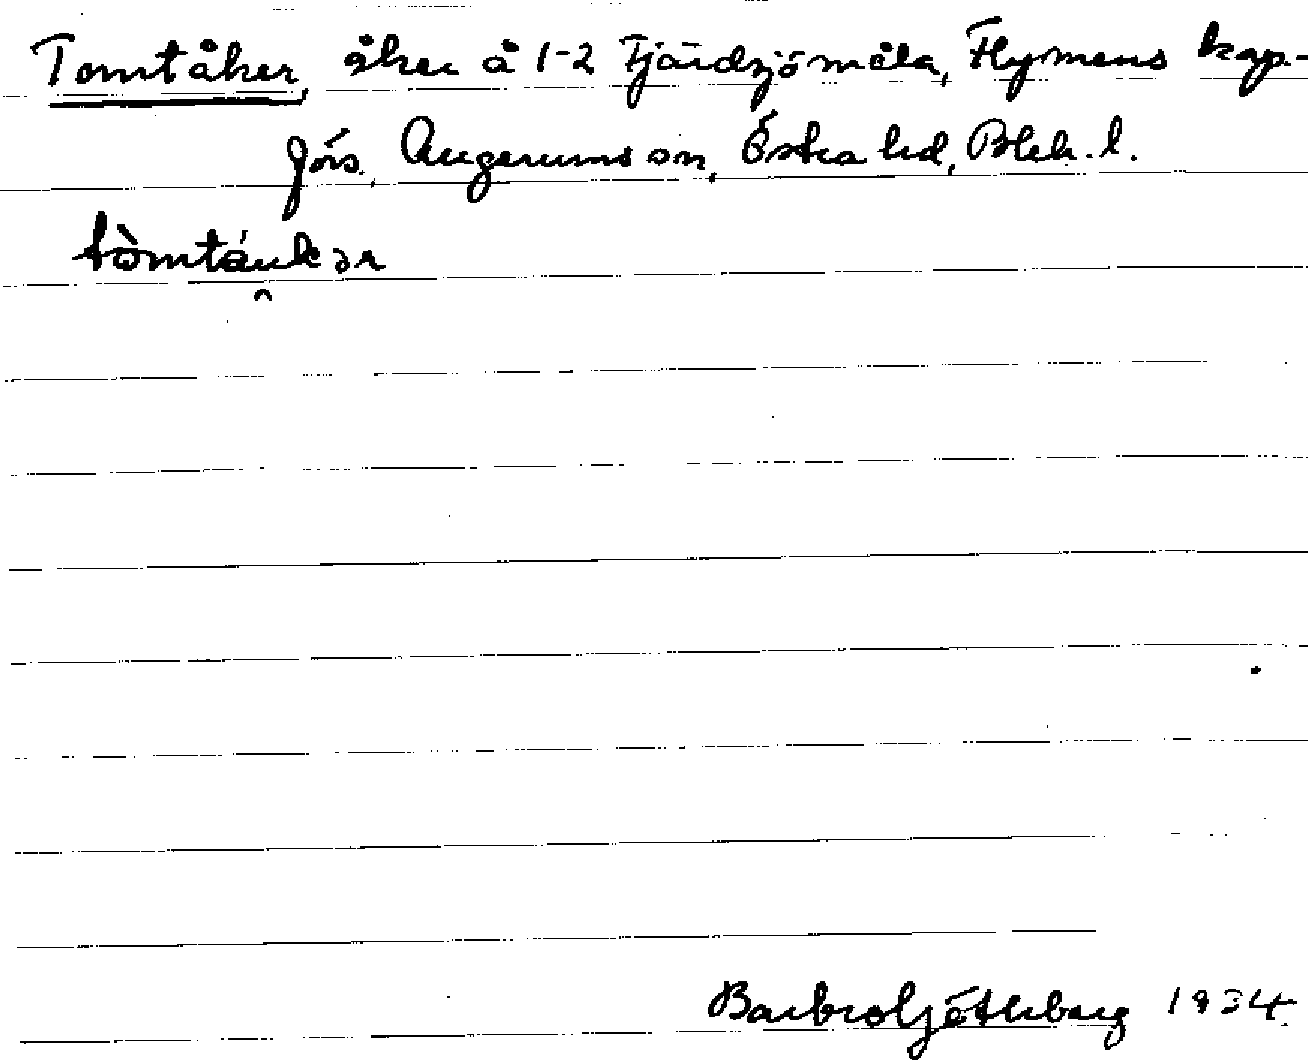 Tomtåker, åker å 1-2 Fjärdsjömåla, Flymens kap-
förs., Augerums sn, Östra hd, Blek. l.
tòmtáukər
Barbro Götherberg 1934